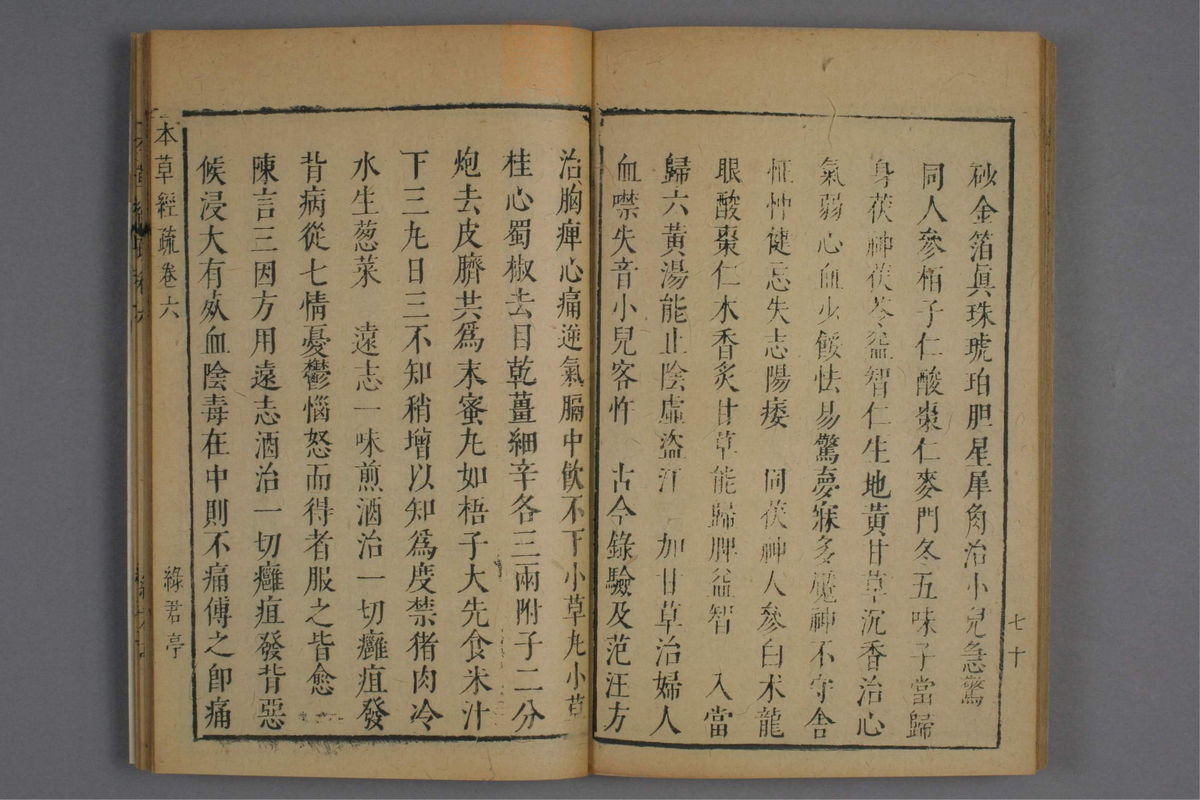 七十
砂金箔眞珠琥珀胆星犀角治小兒急驚
同人參栢子仁酸棗仁麥門冬五味子當歸
身茯神茯苓益智仁生地黃甘草沉香治心
氣弱心血少餒怯易驚夢寐多魘神不守舍
怔忡健忘失志陽痿　同茯神人參白术龍
眼酸棗仁木香炙甘草能歸脾益智　入當
歸六黃湯能止陰虛盜汗　加甘草治婦人
血噤失音小兒客忤　古今錄驗及范汪方
治胸痺心痛逆氣膈中飲不下小草丸小草
桂心蜀椒去目乾薑細辛各三兩附子二分
炮去皮臍共爲末蜜丸如梧子大先食米汁
下三丸日三不知稍增以知爲度禁猪肉冷
水生葱菜　遠志一味煎酒治一切癰疽發
背病從七情憂鬱惱怒而得者服之皆愈
陳言三因方用遠志酒治一切癰疽發背惡
候浸大有妖血陰毒在中則不痛傅之卽痛
本草經疏卷六
綠君亭